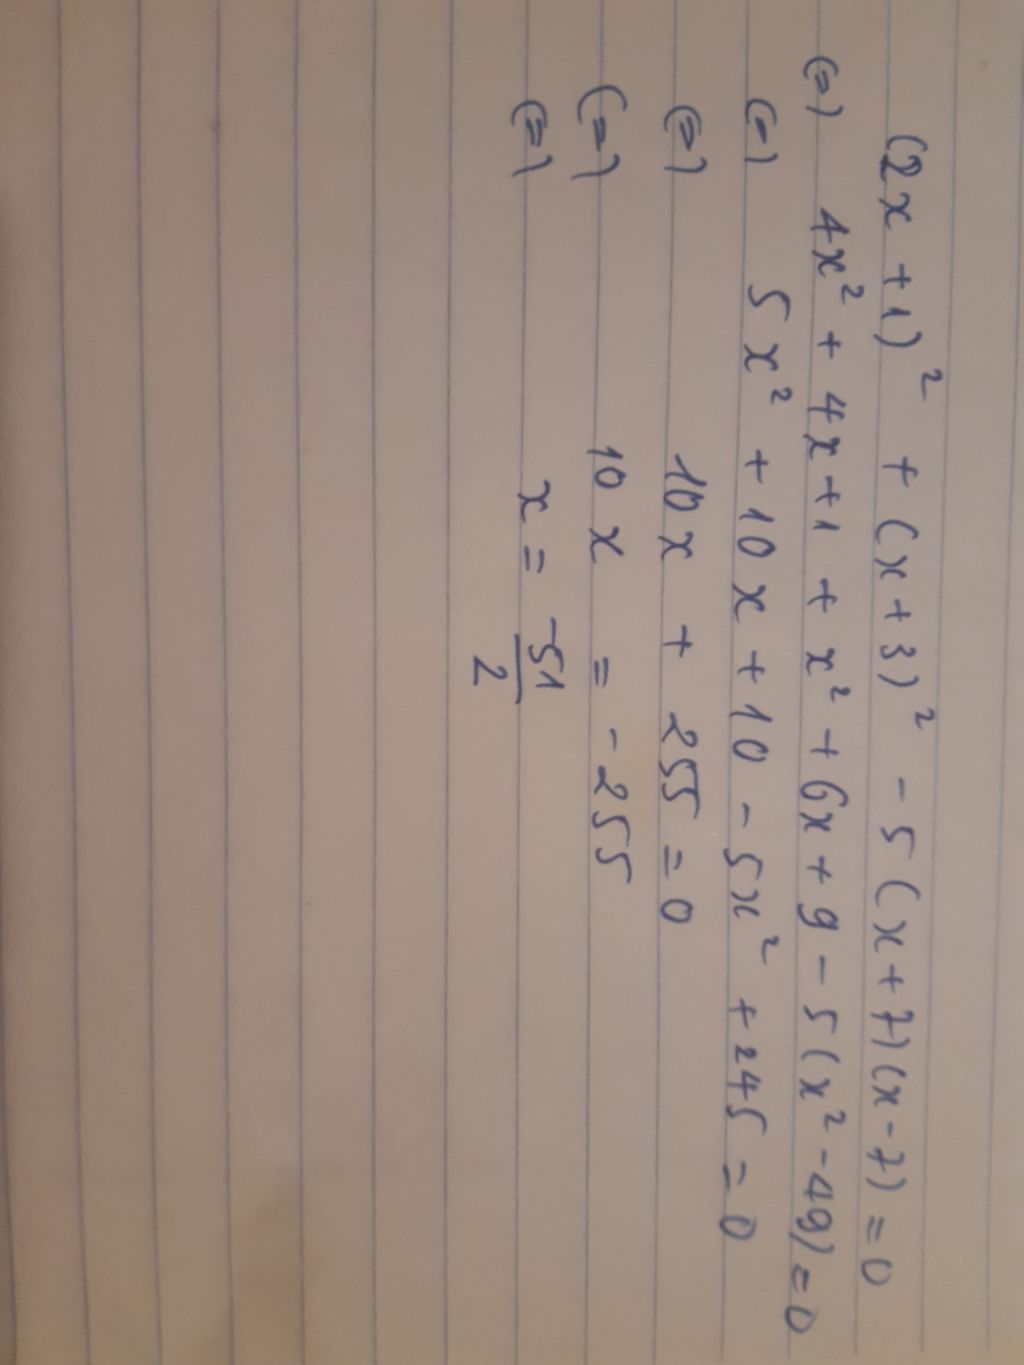 (2x + 1)² + (x + 3)² - 5(x + 7)(x - 7) = 0
(=) 4x² + 4x + 1 + x² + 6x + 9 - 5(x² - 49) = 0
(=) 5x² + 10x + 10 - 5x² + 245 = 0
(=) 10x + 255 = 0
(=) 10x = -255
(=) x = -51/2